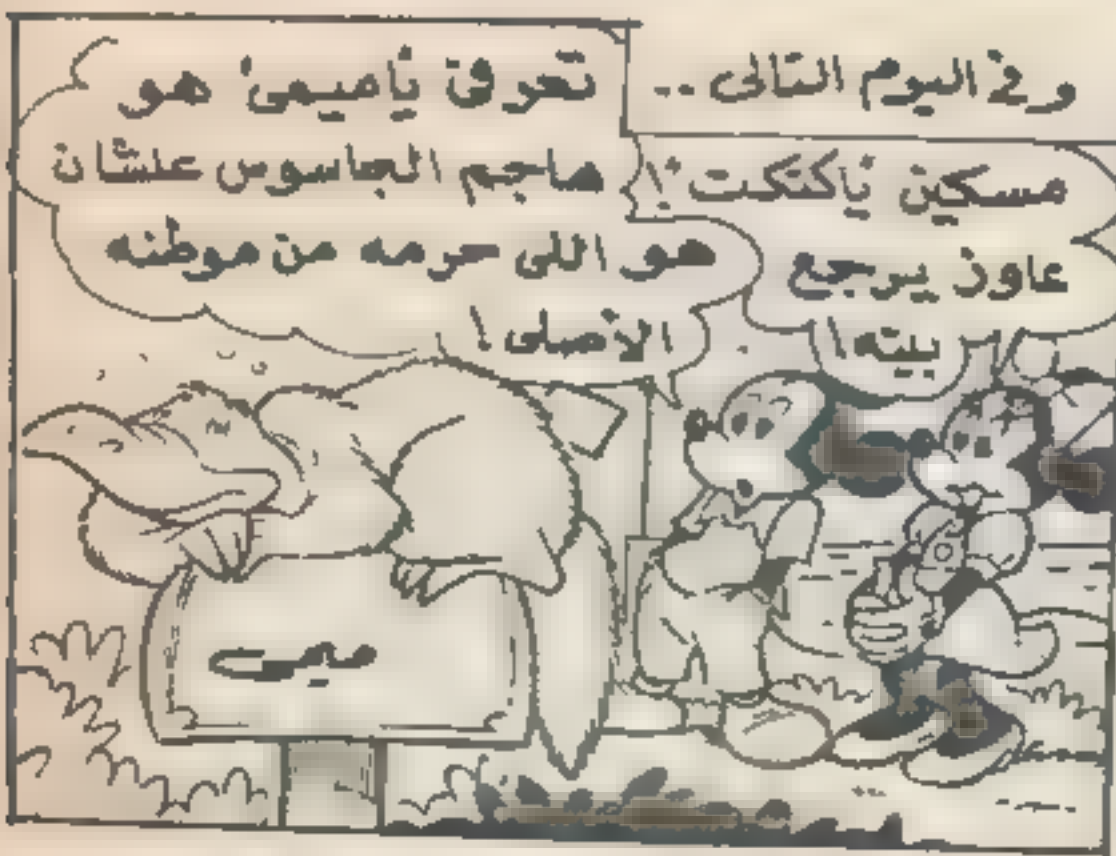 وفى اليوم التالى ..
مسكين ياكتكت !
عاوز يرجع
بيته !
تعرفى ياميمى ' هو
هاجم الجاسوس علشان
هو اللى حرمه من موطنه
الأصلى !
ميمى